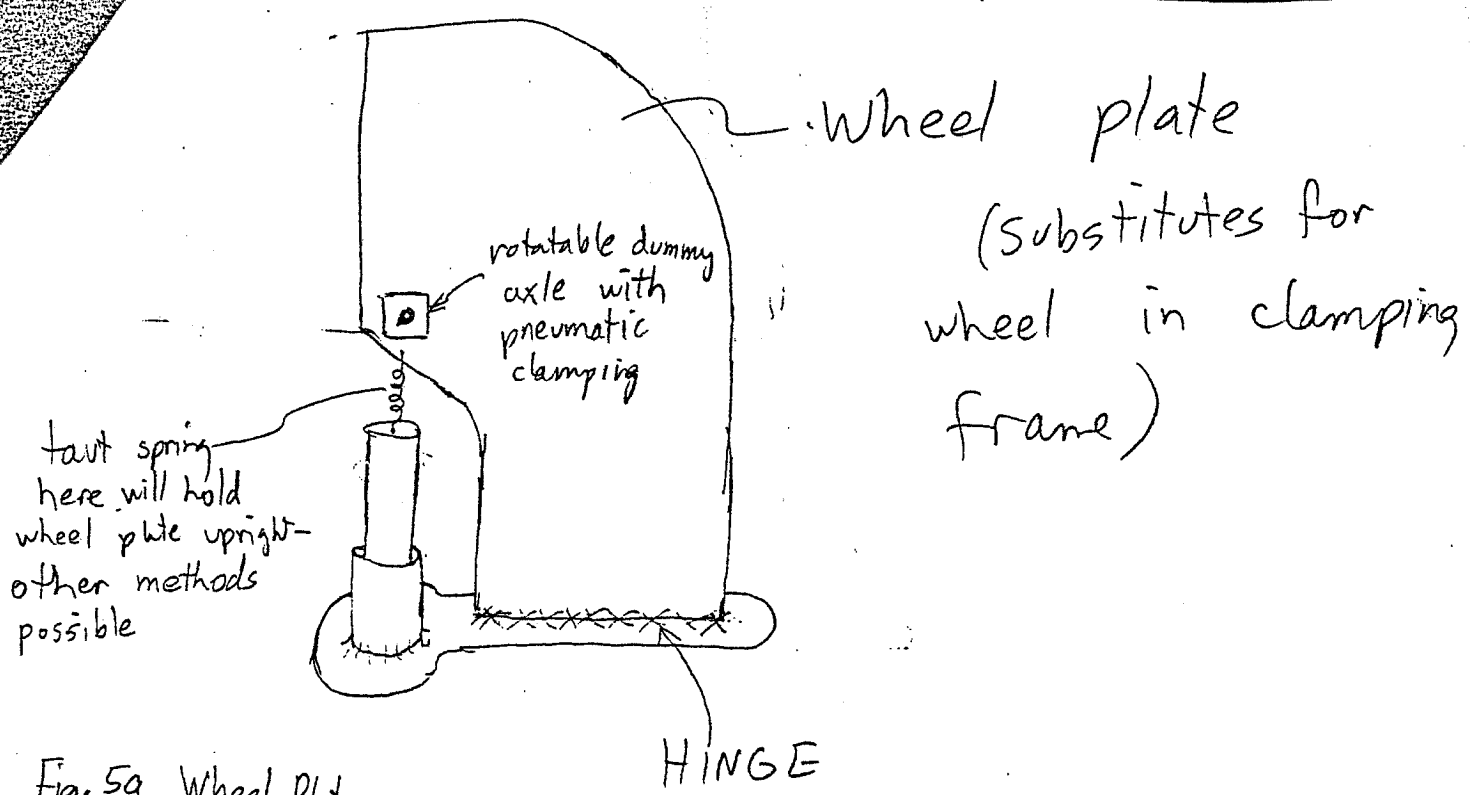 Wheel plate
(substitutes for
wheel in clamping
frame)
rotatable dummy
axle with
pneumatic
clamping
taut spring
here will hold
wheel plate upright-
other methods
possible
HINGE
Fig. 5a Wheel